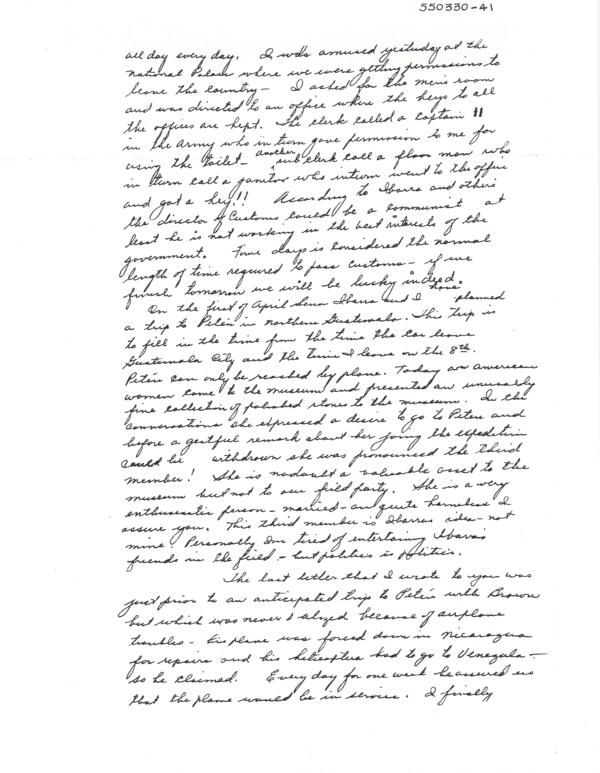 550330-41
all day every day. I was amused yesterday at the
National Palace where we were getting permissions to
leave the country — I asked for the men's room
and was directed to an office where the keys to all
the offices are kept. The clerk called a Captain !!
in the Army who in turn gave permission to me for
using the toilet - another sub clerk call a floor man who
in turn call a janitor who inturn went to the office
and got a key!! According to Ibarra and others
the director of Customs could be a communist at
least he is not working in the best interests of the
government. Four days is considered the normal
length of time required to pass customs — if we
finish tomorrow we will be lucky indeed.
On the first of April Senor Ibarra and I have planned
a trip to Petén in northern Guatemala. This trip is
to fill in the time from the time the car leave
Guatemala City and the time I leave on the 8th.
Petén can only be reached by plane. Today an american
women come to the museum and presented an unusually
fine collection of polished stones to the museum. In the
conversations she expressed a desire to go to Peten and
before a remark about her joing the expedition
could be withdrawn she was pronounced the third
member! She is nodoubt a valuable asset to the
museum but not to our field party. She is a very
enthusiastic person - married - an quite harmless I
assure you. This third member is Ibarras idea - not
mine. Personally Im tired of entertaing Ibarra's
friends in the field - but politics is politics.
The last letter that I wrote to you was
just prior to an anticipated trip to Petén with Brown
but which was never because of airplane
troubles - His plane was forced down in Nicaragua
for repairs and his helicoptera had to go to Venezula —
so he claimed. Every day for one week he assured us
that the plane would be in service. I finally